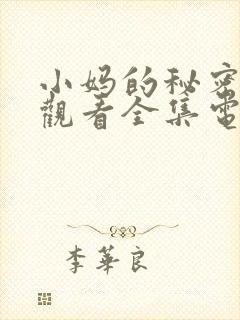 小妈的秘密
觀看全集電
李華良